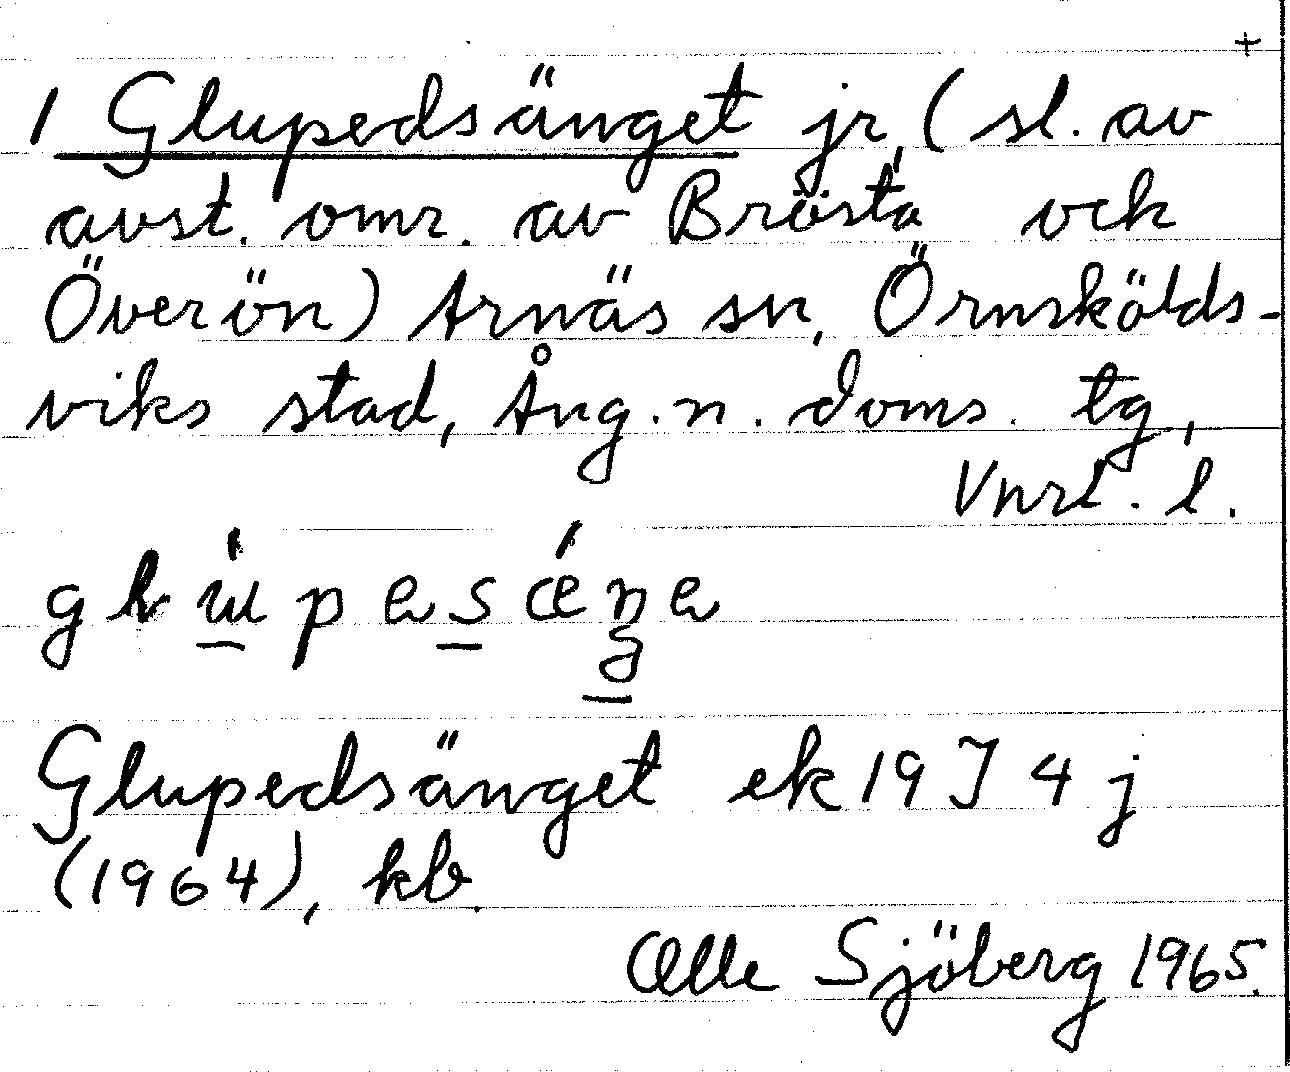 +
1 Glupedsänget jr, (sl. av
avst. omr. av Brösta och
Överön) Arnäs sn, Örnskölds-
viks stad, Ång. n. doms. tg,
Vnrl. l.
Glupedsänget ek 19 J 4 j
(1964), kb.
Olle Sjöberg 1965.